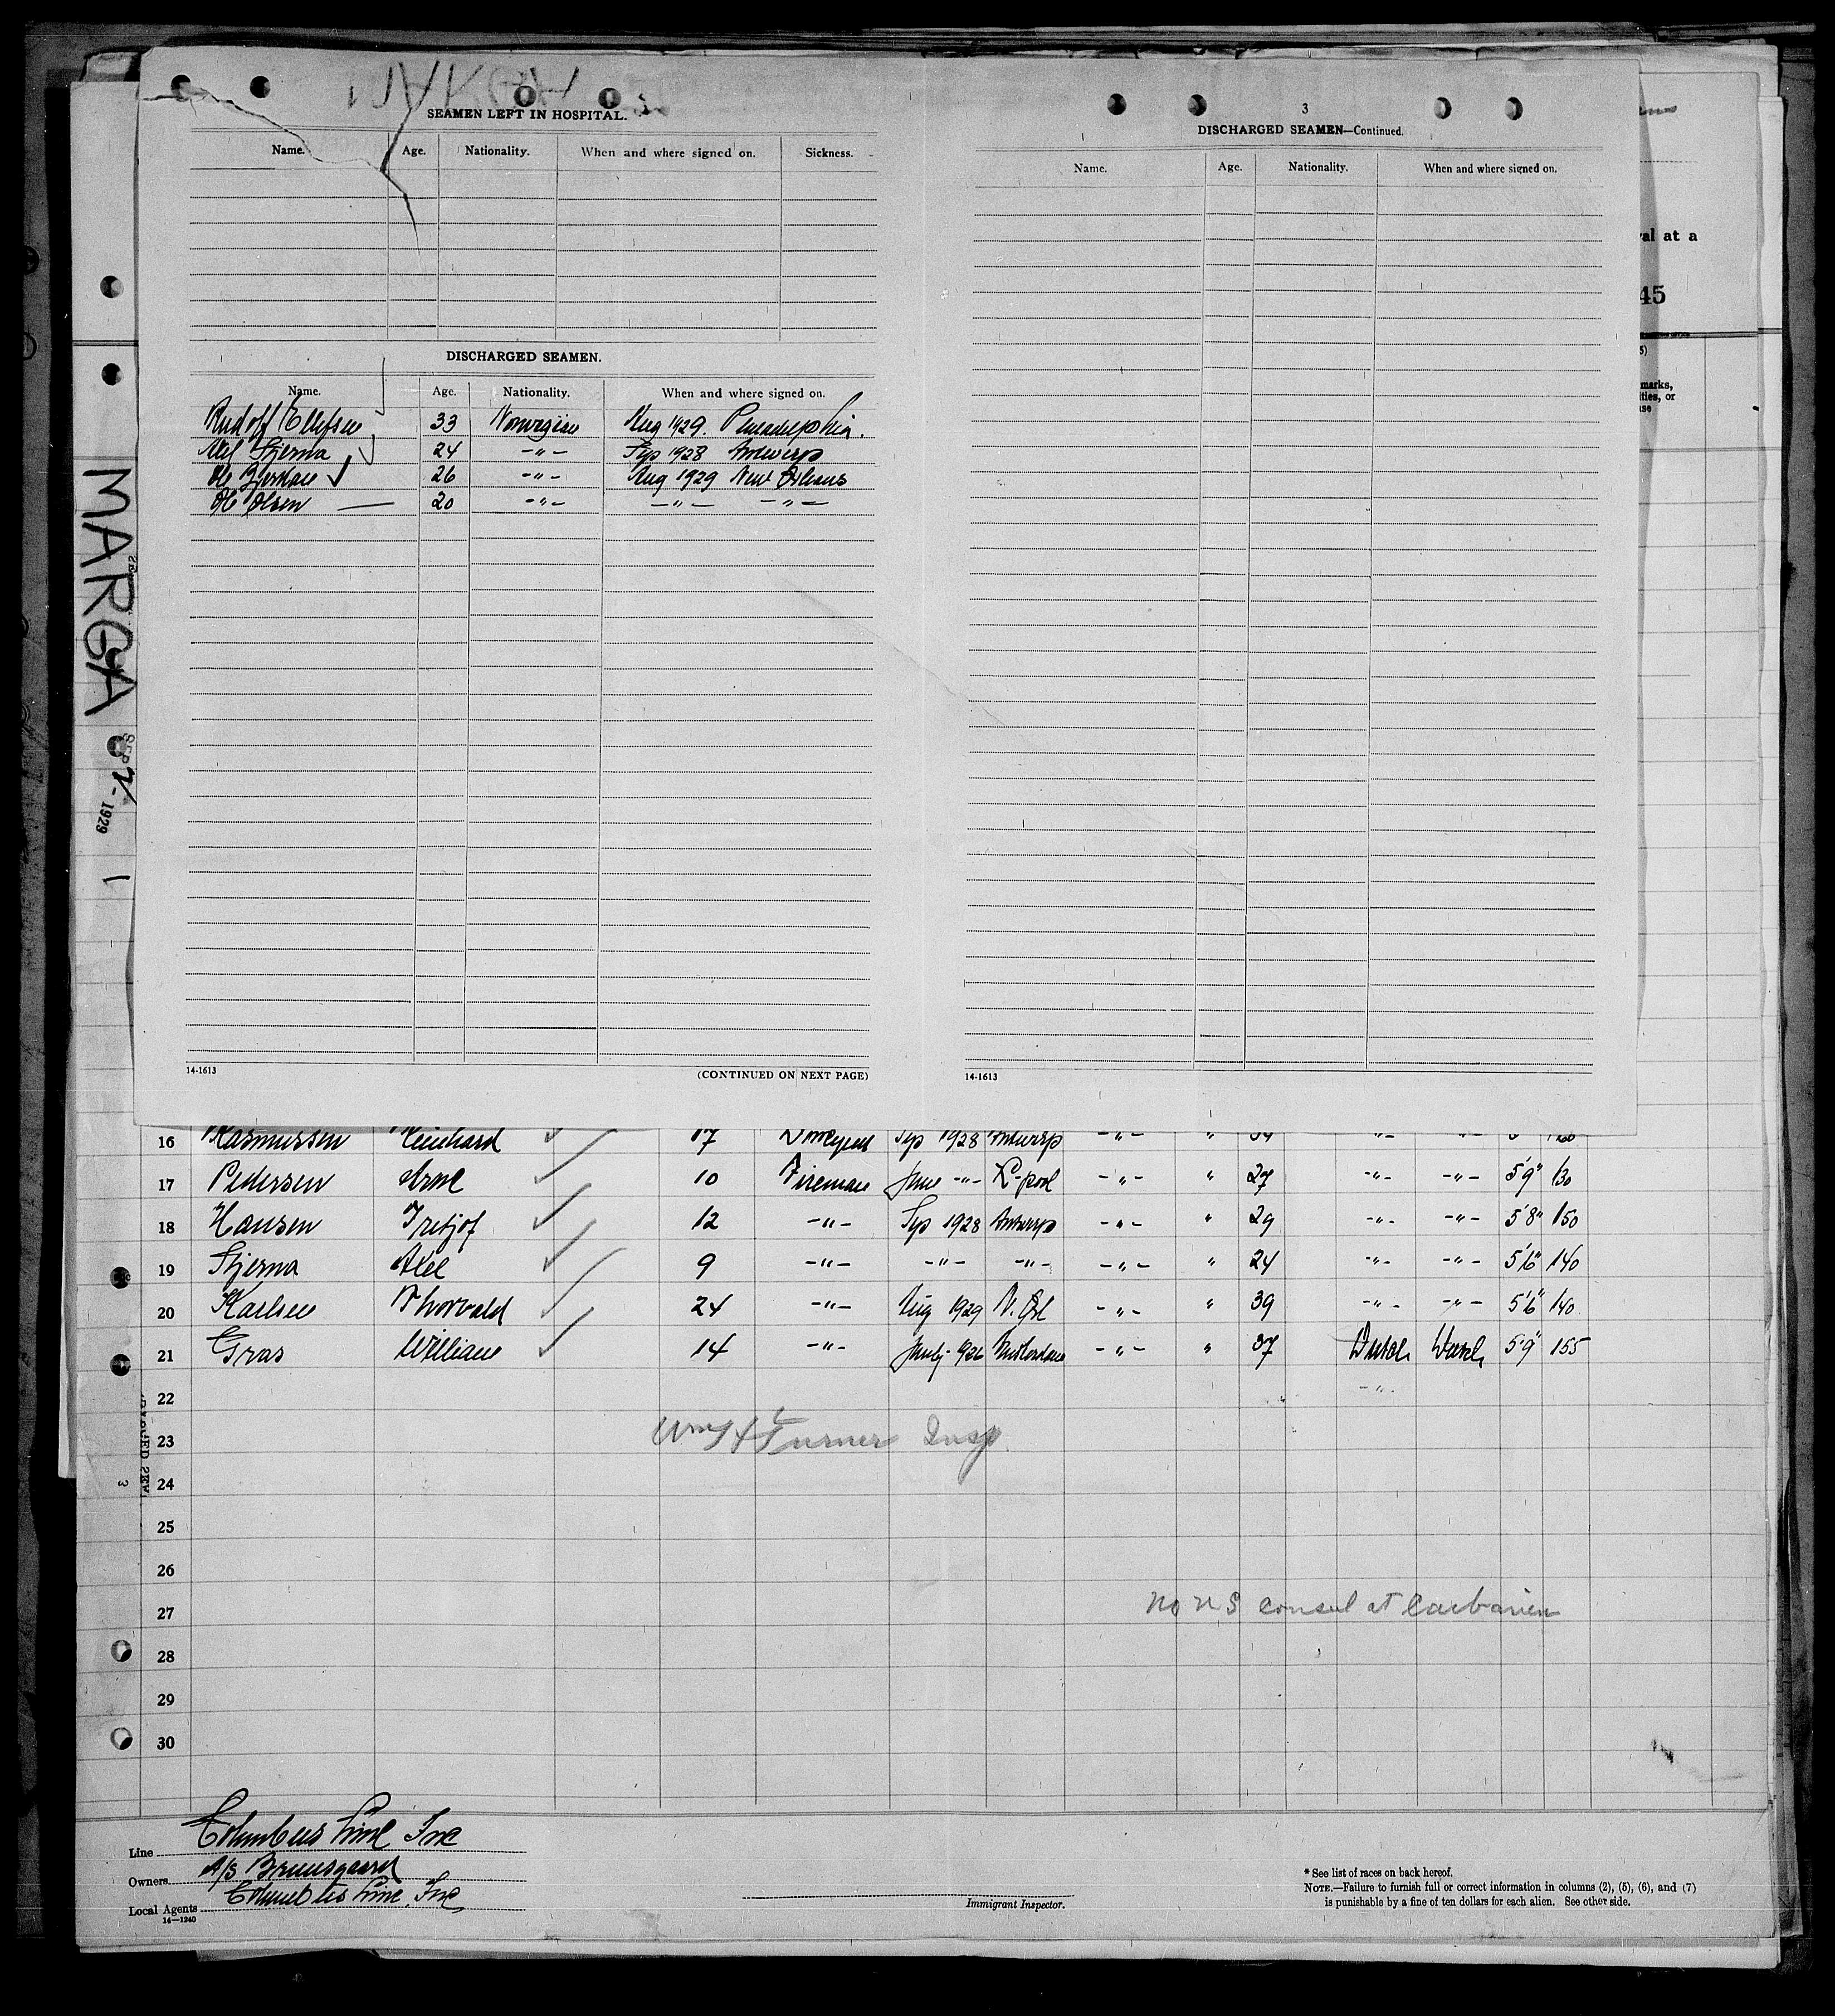 SEAMEN LEFT IN HOSPITAL.
Name. Age. Nationality. When and where signed on. Sickness.
DISCHARGED SEAMEN.
Name. Age. Nationality. When and where signed on.
Rudolf Ellefsen 33 Norwegian Aug 1929. Philadelphia.
Axel Stjerna 24 -"- Sep 1928 Antwerp
26 -"- Aug 1929 New Orleans
Olsen — 20 -"- -"- -"-
14-1613 (CONTINUED ON NEXT PAGE)
3
DISCHARGED SEAMEN—Continued.
Name. Age. Nationality. When and where signed on.
14-1613
val at a
45
5)
marks,
ities, or
use
MARGA
SEP 2 - 1929
1
16 Rasmussen 17 Sep 1928 Antwerp -"- "
17 Pedersen Arne 10 Fireman June -"- L-pool -"- " 27 -"- -"- 5'9" 130
18 Hansen 12 -"- Sep 1928 Antwerp -"- " 29 -"- -"- 5'8" 150
19 Stjerna Axel 9 -"- -"- -"- -"- " 24 -"- -"- 5'6" 140
20 Karlsen Thorvald 24 -"- Aug 1929 N. Orl -"- " 39 -"- -"- 5'6" 140
21 Gras William 14 -"- 1926 -"- " 37 Dutch Dutch 5'9" 155
22 -"-
23 Turner Insp.
24
25
26
27 No US Consul at Caibarien
28
29
30
3
Line Columbus Line Inc
Owners A/S Bruusgaard
Local Agents Columbus Line. Inc
14—1240
Immigrant Inspector.
* See list of races on back hereof.
NOTE.—Failure to furnish full or correct information in columns (2), (5), (6), and (7)
is punishable by a fine of ten dollars for each alien. See other side.